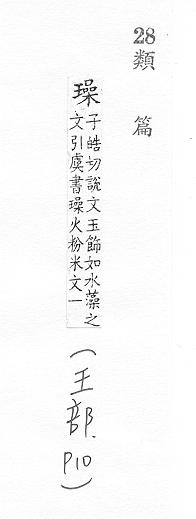 28
類篇
璪子皓切說文玉飾如水藻之
文引虞書璪火粉米文一
(王部、P10)